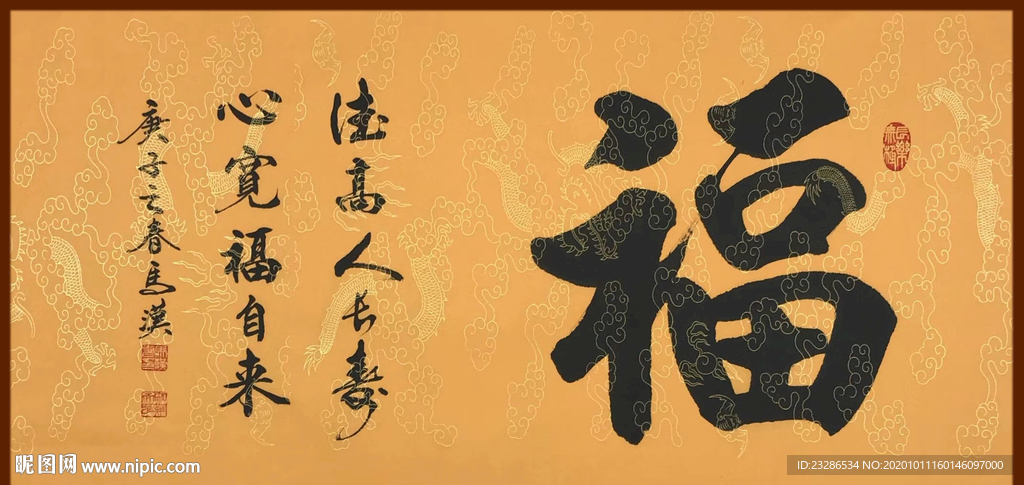 福
德高人长寿
心宽福自来
庚子之春马汉
昵图网 www.nipic.com
ID:23286534 NO:20201011160146097000